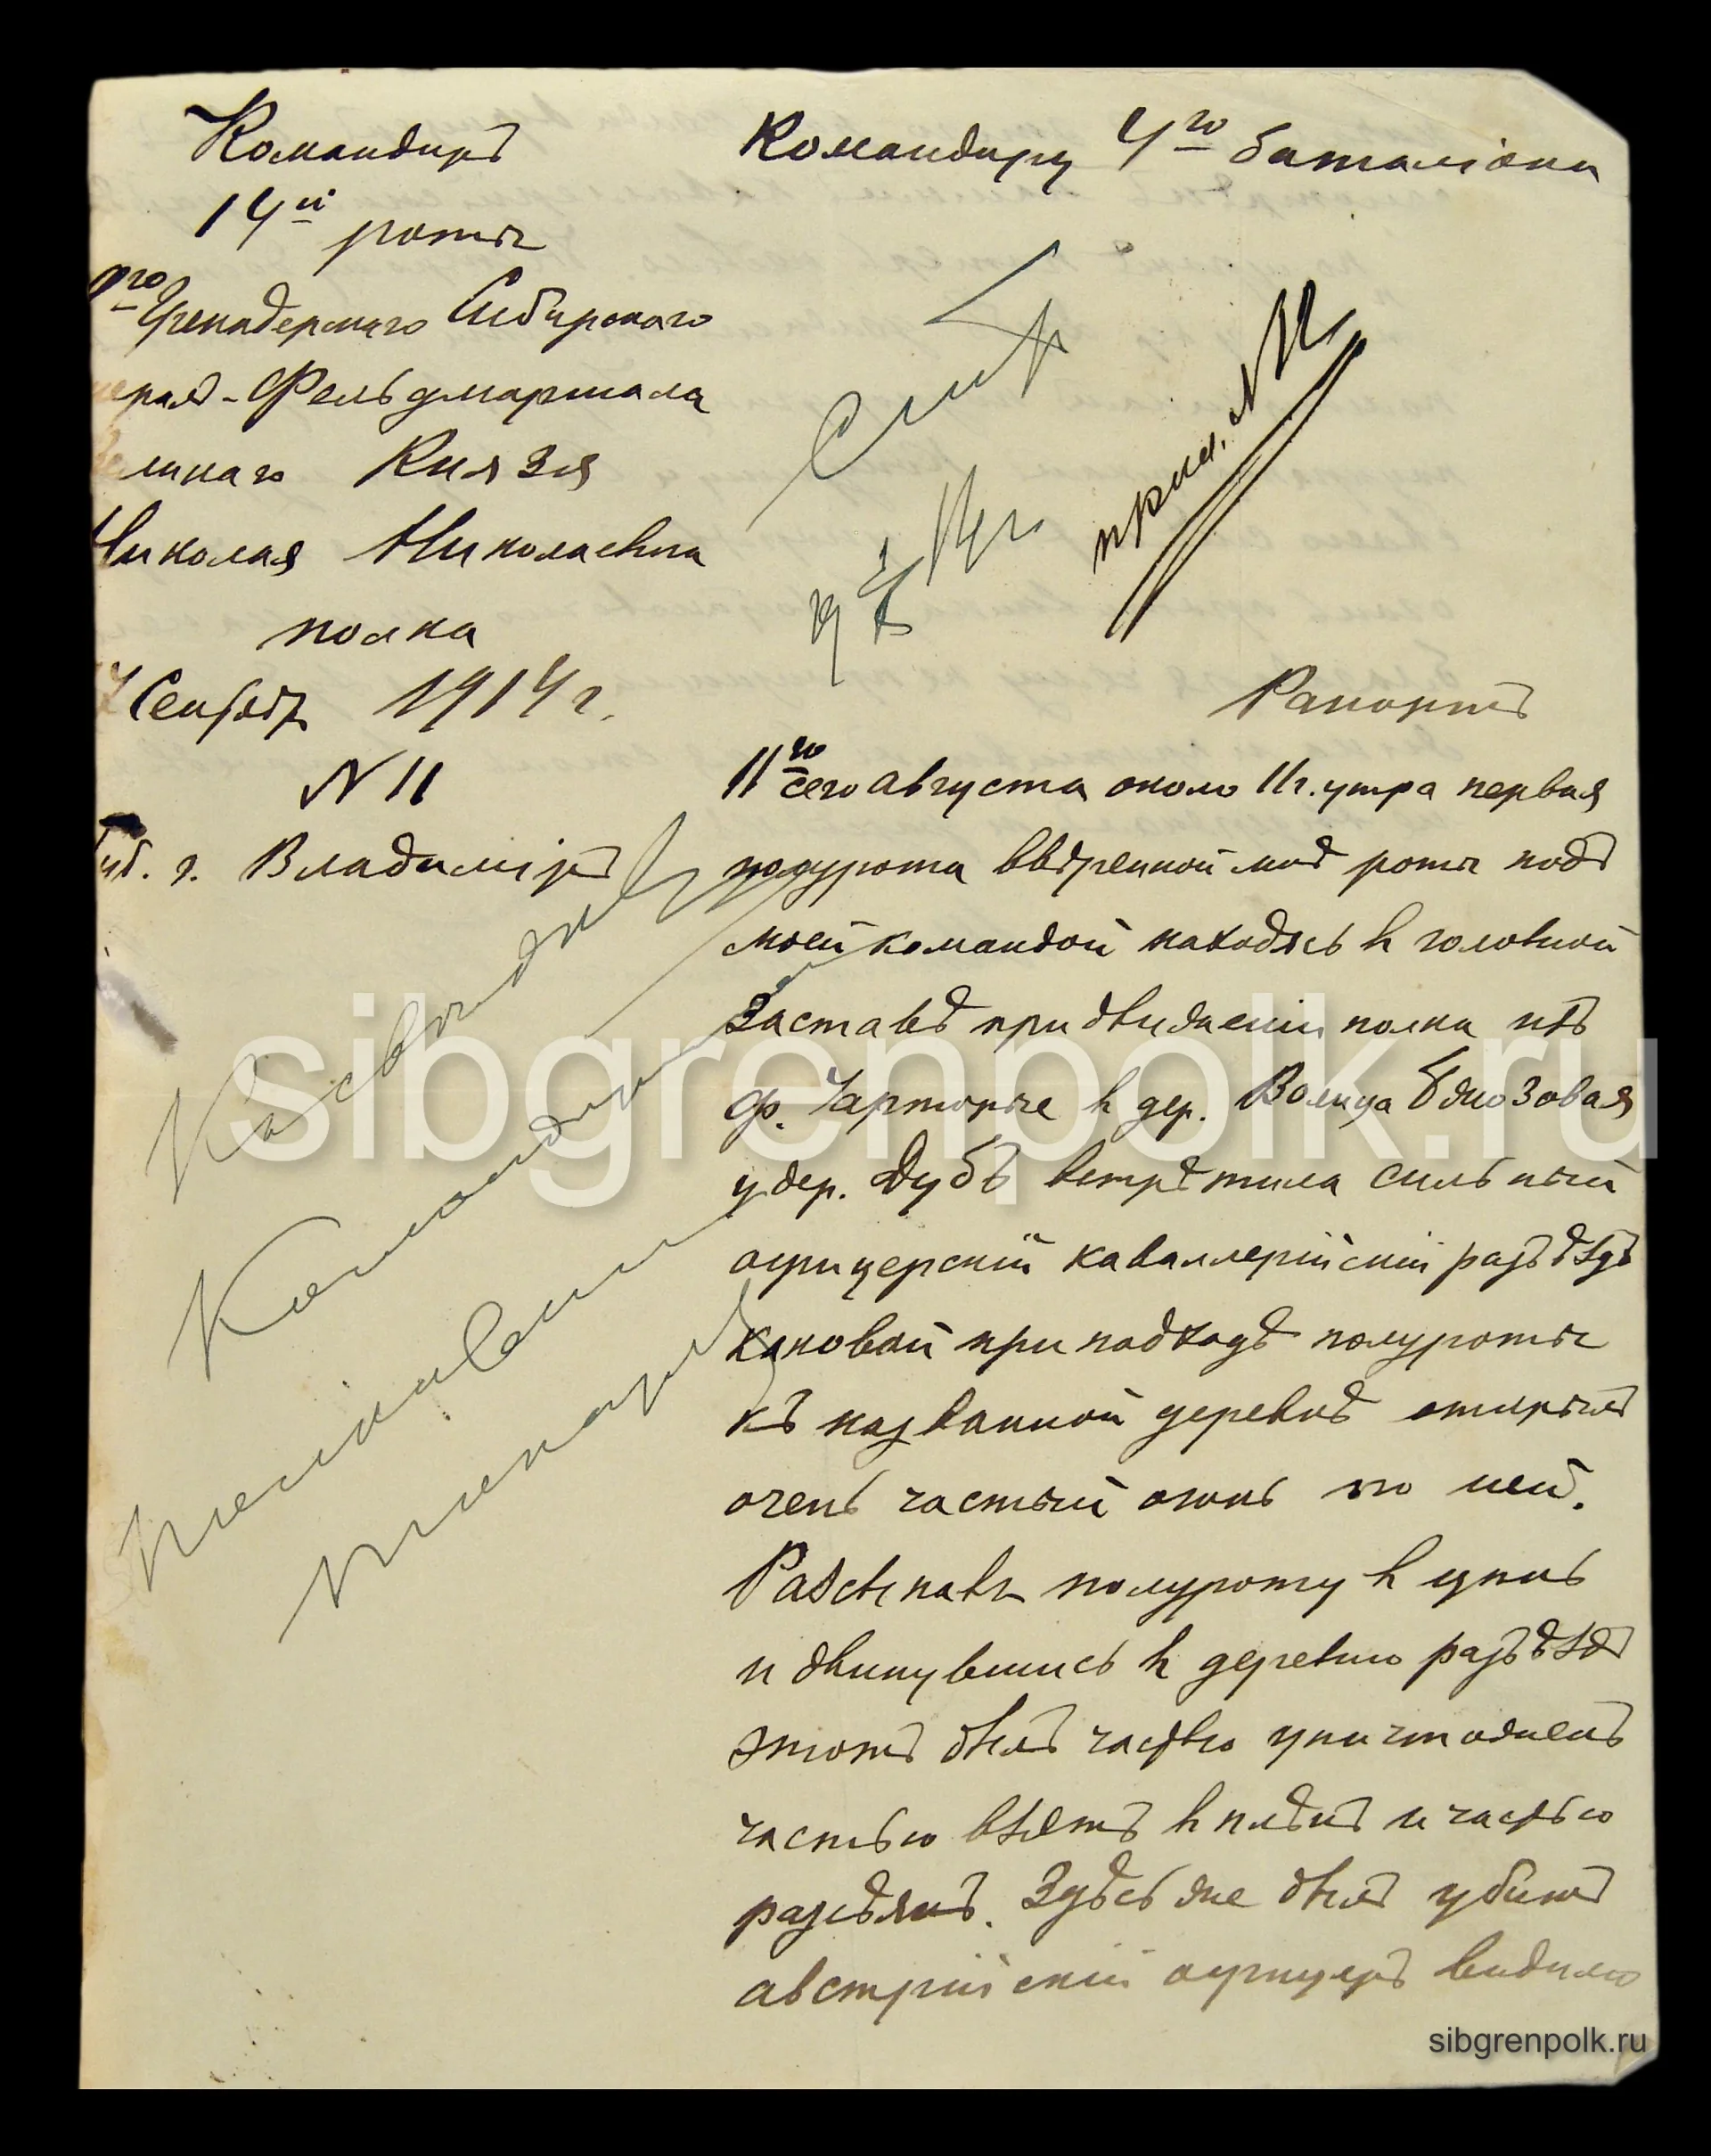 Командиръ
14й роты
9го Гренадерскаго Сибирскаго
нерал-Фельдмаршала
Великаго Князя
Николая Николаевича
полка
Сентябр 1914 г.
N 11
г. Владиміръ
Командиру 4го баталіона
прил. N 12
Рапортъ
11го сего августа около 11 г. утра первая
полурота ввѣренной мнѣ роты подъ
моей командой находясь в головной
заставѣ при движеніи полка изъ
ф. Чарторые в дер. Волица Бжозовая
у дер. Дубъ встрѣтила сильный
офицерскій каваллерійскій разъѣздъ
каковой при подходѣ полуроты
къ названной деревнѣ открылъ
очень частый огонь по ней.
Разсыпавъ полуроту в цѣпь
и двинувшись в деревню разъѣздъ
этотъ былъ частью уничтоженъ
частью взятъ в плѣнъ и частью
разсѣянъ. Здѣсь же былъ убитъ
австрійскій офицеръ видимо
sibgrenpolk.ru
sibgrenpolk.ru